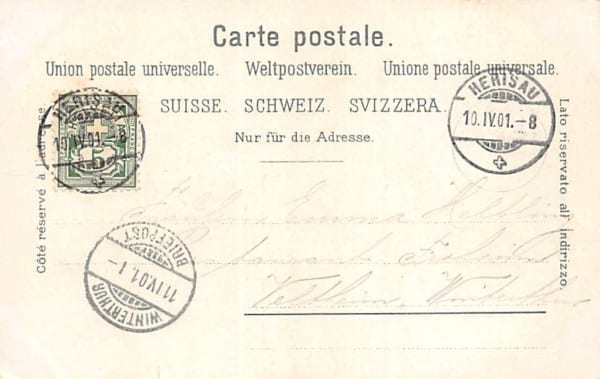 Carte postale.
Union postale universelle. Weltpostverein. Unione postale universale.
SUISSE. SCHWEIZ. SVIZZERA.
Nur für die Adresse.
Côté réservé à l'adresse.
Lato riservato all' indirizzo.
HERISAU
10.IV.01.-8
HERISAU
10.IV.01.-8
BRIEFPOST
11.IV.01.1-
WINTERTHUR
Fräulein Emma
Restaurant
Veltheim, Winterthur